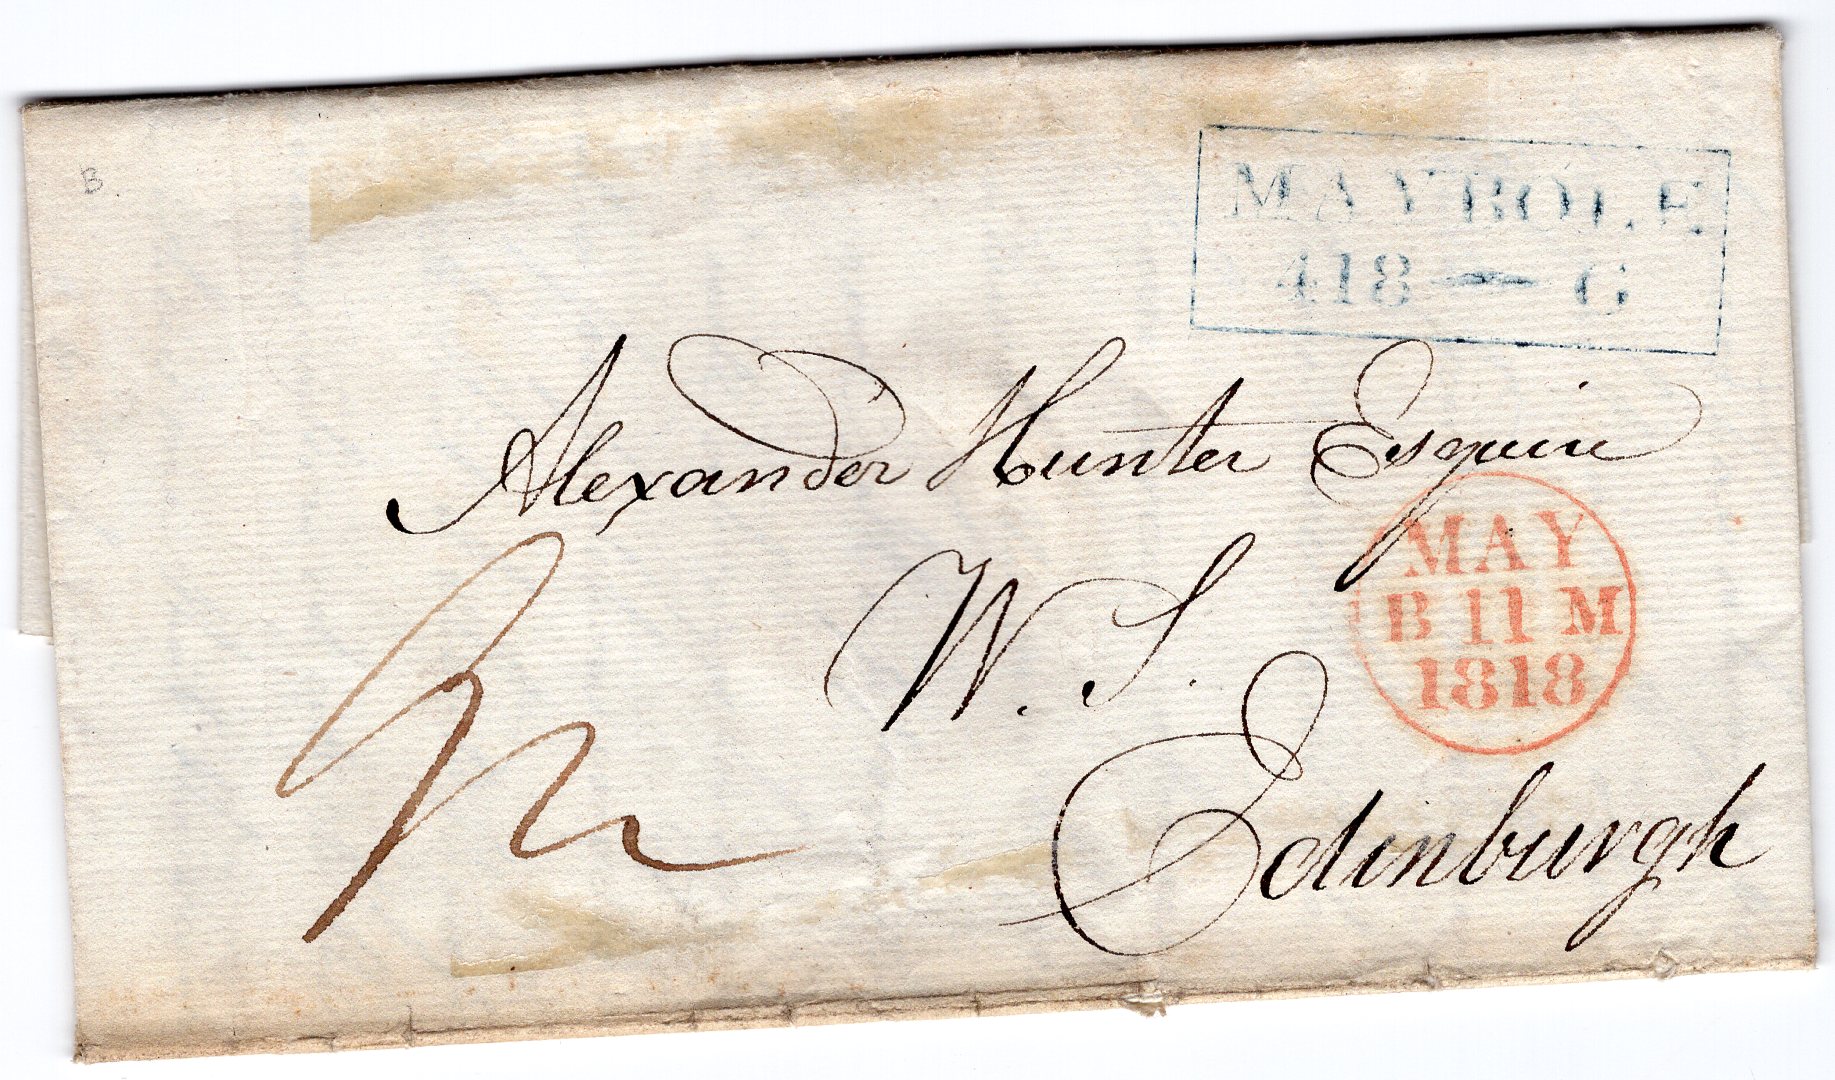 B
MAYBOLE
418 — G
Alexander Hunter Esquire
W. S.
Edinburgh
MAY
B 11 M
1818